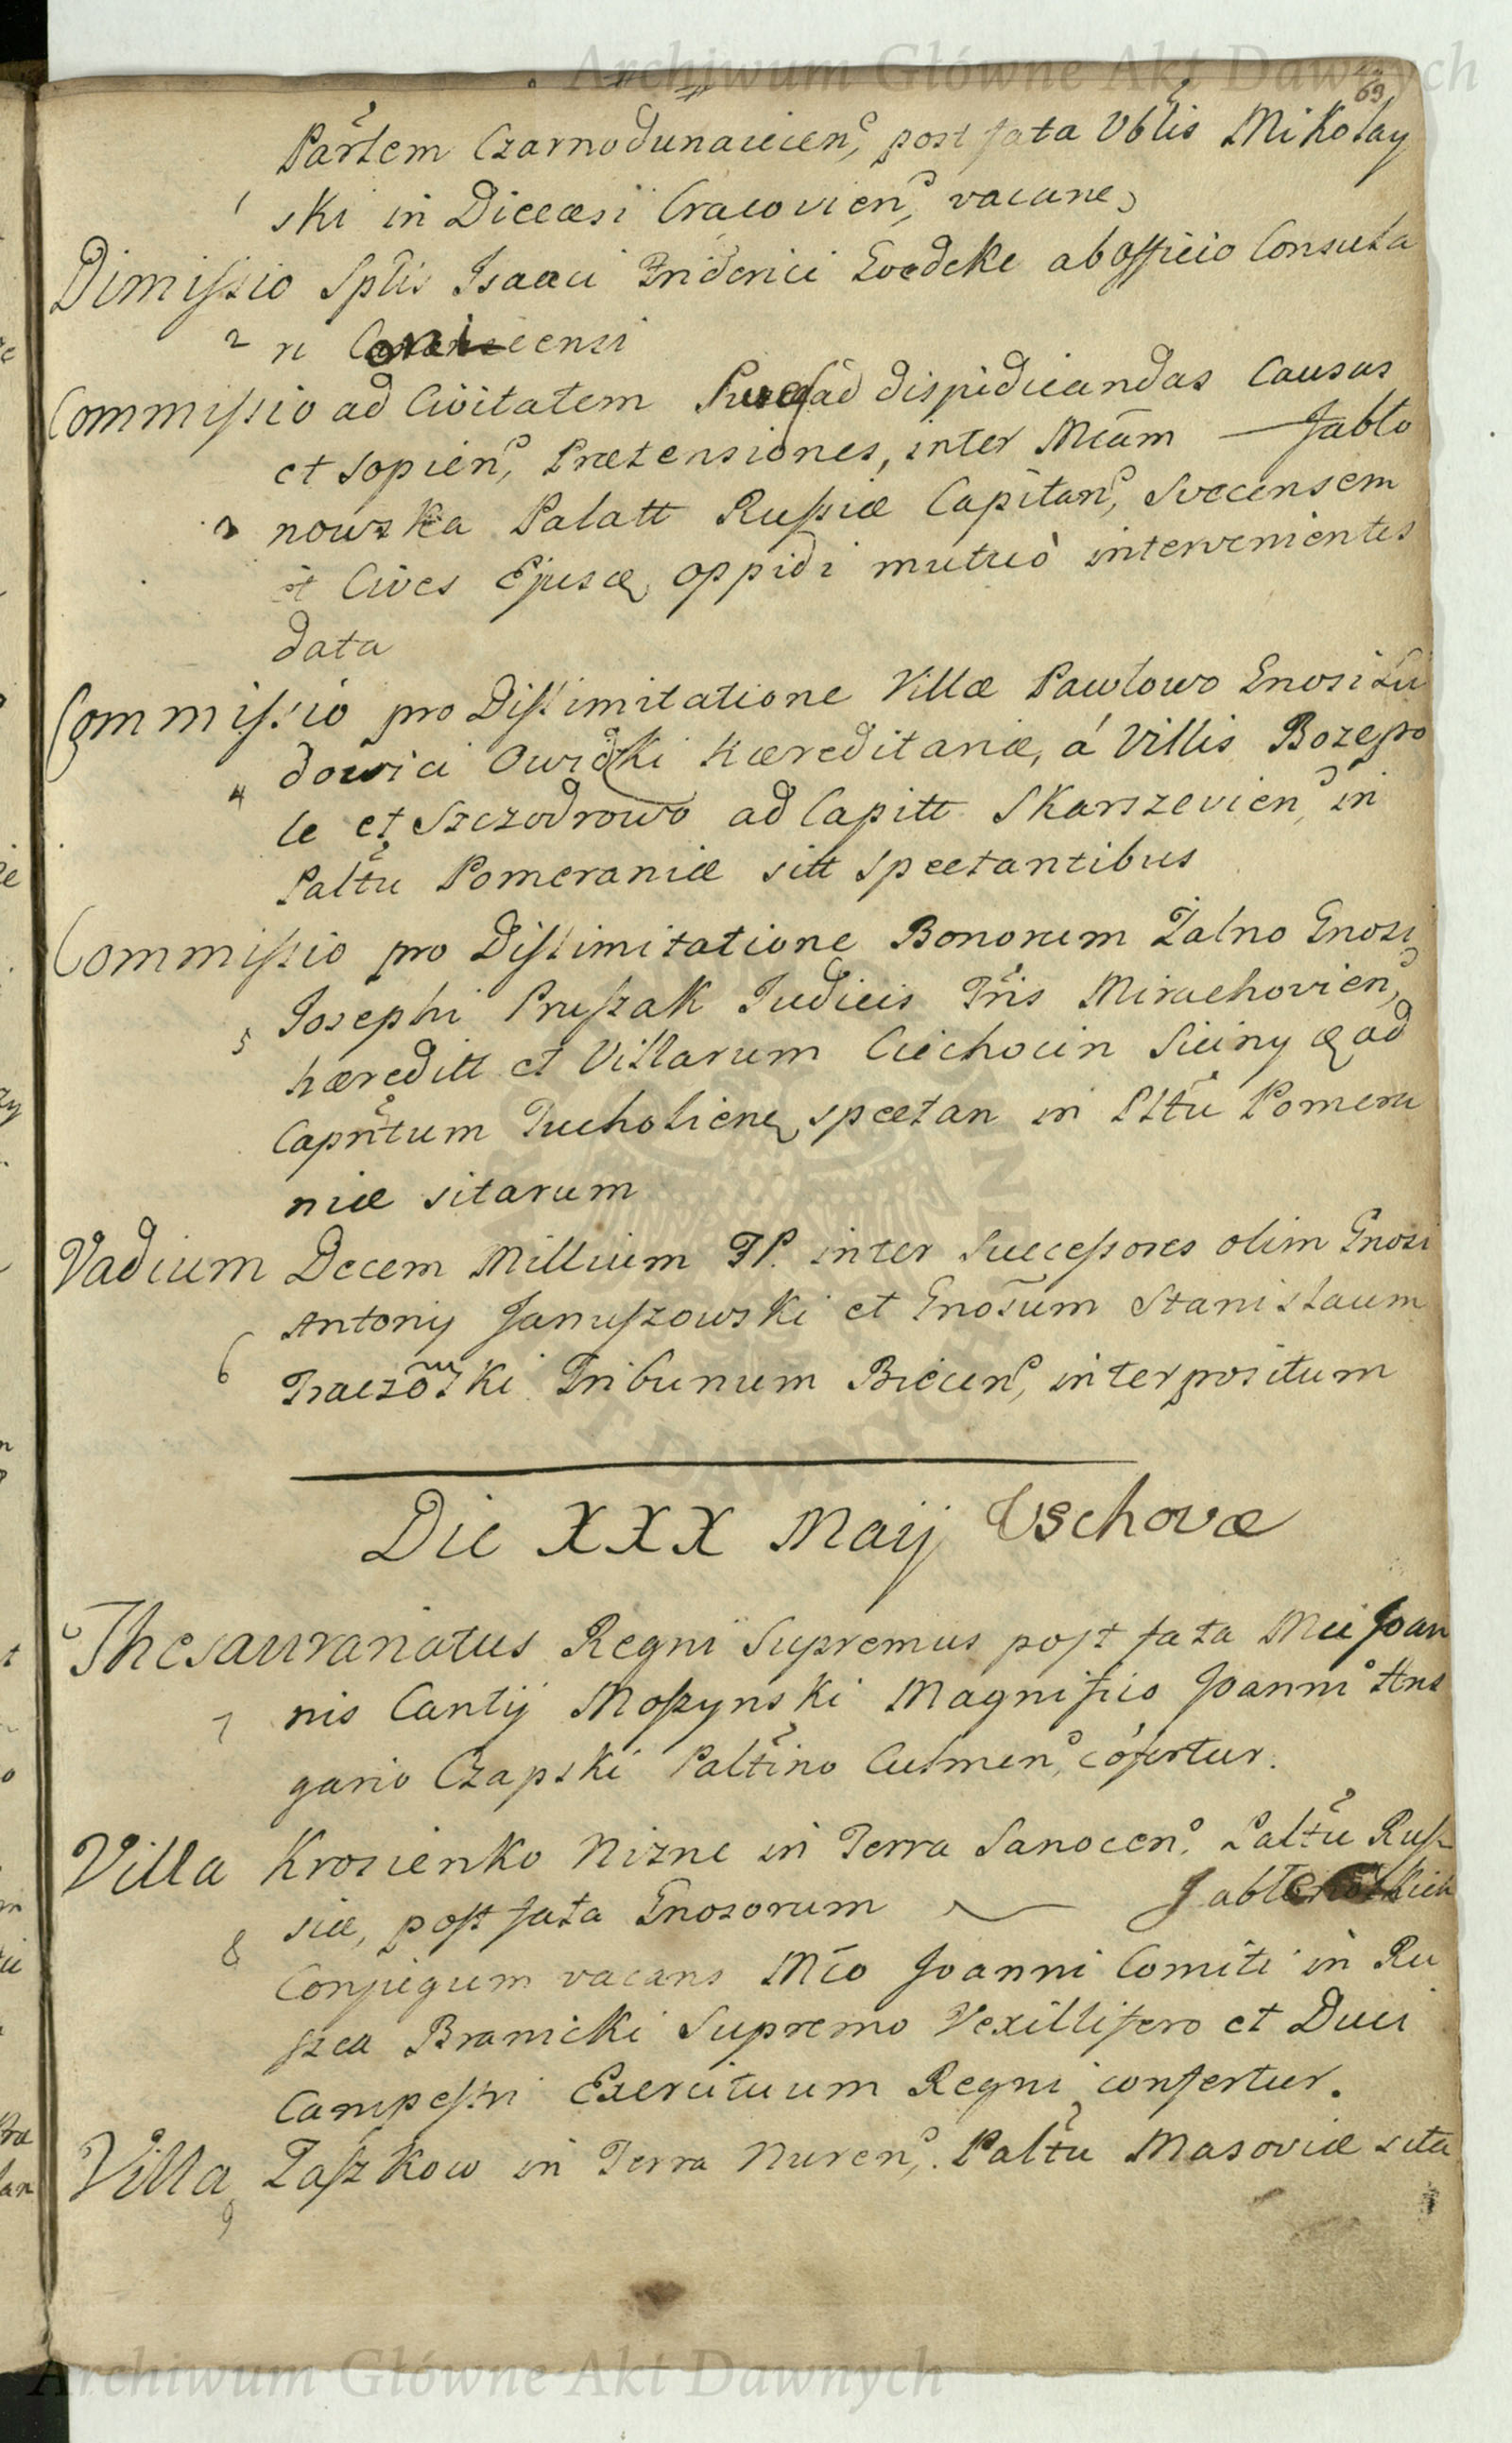 Archiwum Główne Akt Dawnych
69
Partem Czarnodunaiecien, post fata Vblis Mikolay
1 ski in Diecæsi Cracovien, vacane,
Dimissio Splis Isaaci Friderici Goedeke ab officio Consula
2 ri censi
Commissio ad Civitatem ad dispidicandas Causas
et sopien, Prætensiones, inter Mcam — Jabło
3 nowska Palatt Russiæ Capitan, Svecensem
et Cives Ejusq, oppidi mutuò intervenientes
data
Commissio pro Dislimitatione Villæ Pawłowo Gnosi Lu
4 dovici Owidzki hæreditariæ, á Villis Bozepo
le et Szczodrowo ad Capitt Skarszevien, in
Paltu Pomeraniæ sitt spectantibus
Commissio pro Dislimitatione Bonorum Żalno Gnosi
5 Josephi Pruszak Iudicis Tris Mirachovien,
hæreditt et Villarum Ciechocin Siciny &ad
Caprtum Tucholien, spectan in Pltu Pomera
niæ sitarum
Vadium Decem Millium FP. inter Successores olim Gnosi
Antonij Januszowski et Gnosum Stanisłaum
6 Traczewski Tribunum Biecen, interpositum
Die XXX Maij Vschovæ
Thesaurariatus Regni Supremus post fata Mci Joan
7 nis Cantij Moszynski Magnifico Joanni Ans
gario Czapski Paltino Culmen, cofertur.
Villa Krosienko Nizne in Terra Sanocen. Paltu Rus
8 siæ, post fata Gnosorum — Jabłonskich
Conjugum vacans Mco Joanni Comiti in Ru
szca Branicki Supremo Vexillifero et Duci
Campestri Exercituum Regni confertur.
Villa Łaszkow in Terra Nuren, Paltu Masoviæ sita
9
Archiwum Główne Akt Dawnych